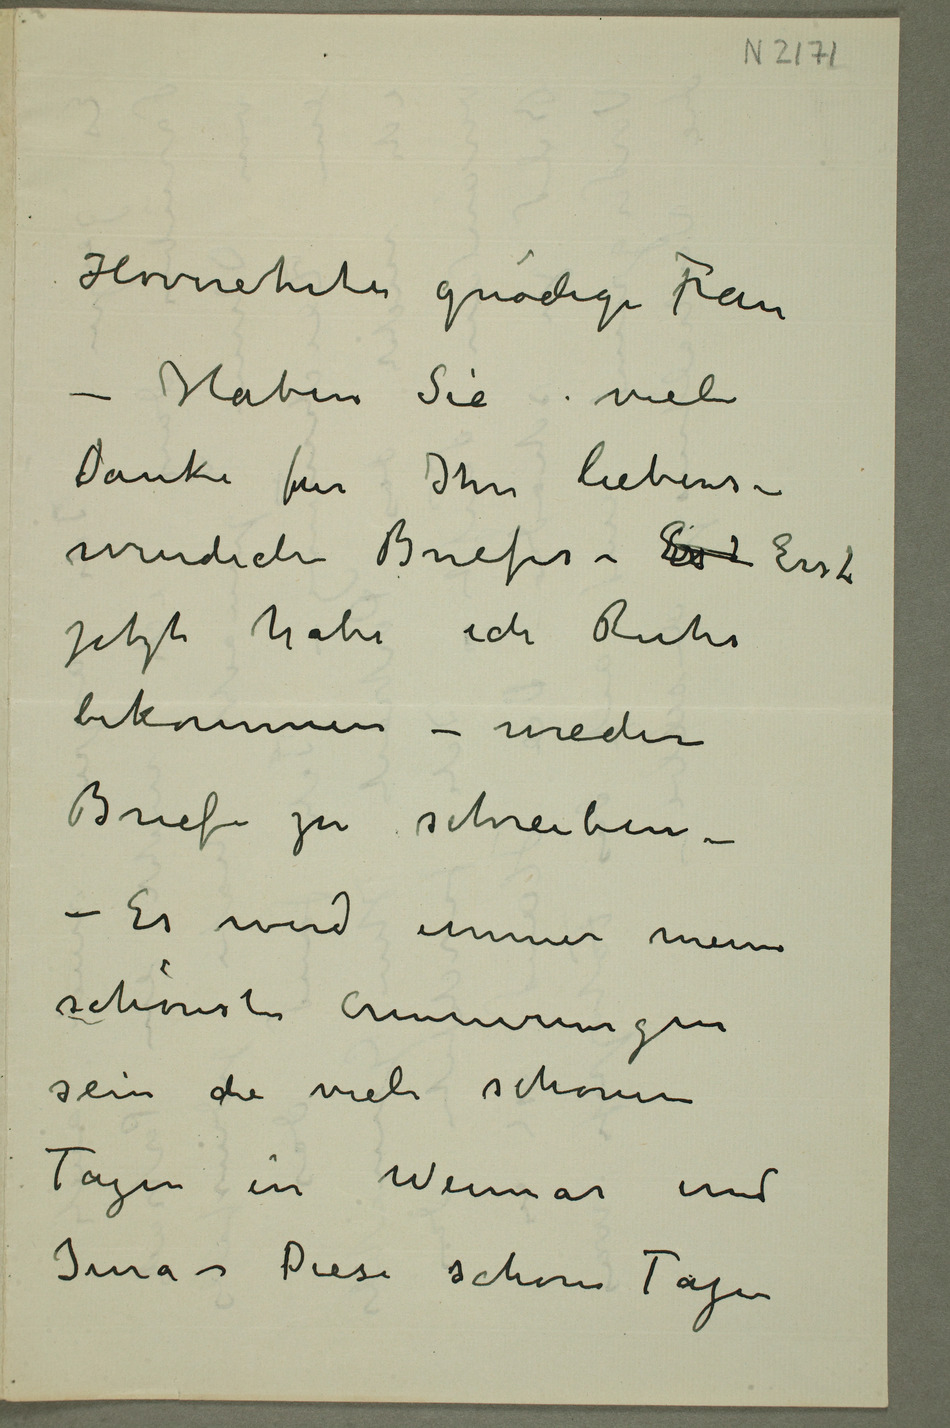 N 2171
Hovverehrte gnädige Frau
– Haben Sie viele
Danke für Ihre liebens–
wurdiche Briefes – Es Erst
jetzt habe ich Ruhe
bekommen – wieder
Briefe zu schreiben –
– Es wird immer meine
schönste Erinnerungen
sein die viele schönen
Tagen in Weimar und
Jena – Diese schöne Tagen